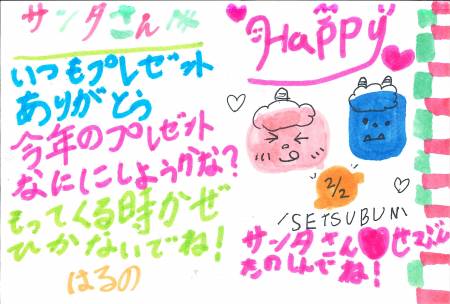 サンタさんへ
いつもプレゼット
ありがとう
今年のプレゼット
なににしようかな?
もってくる時かぜ
ひかないでね!
はるの
Happy
2/2
\SETSUBUN/
サンタさん♥せつぶん
たのしんでね!